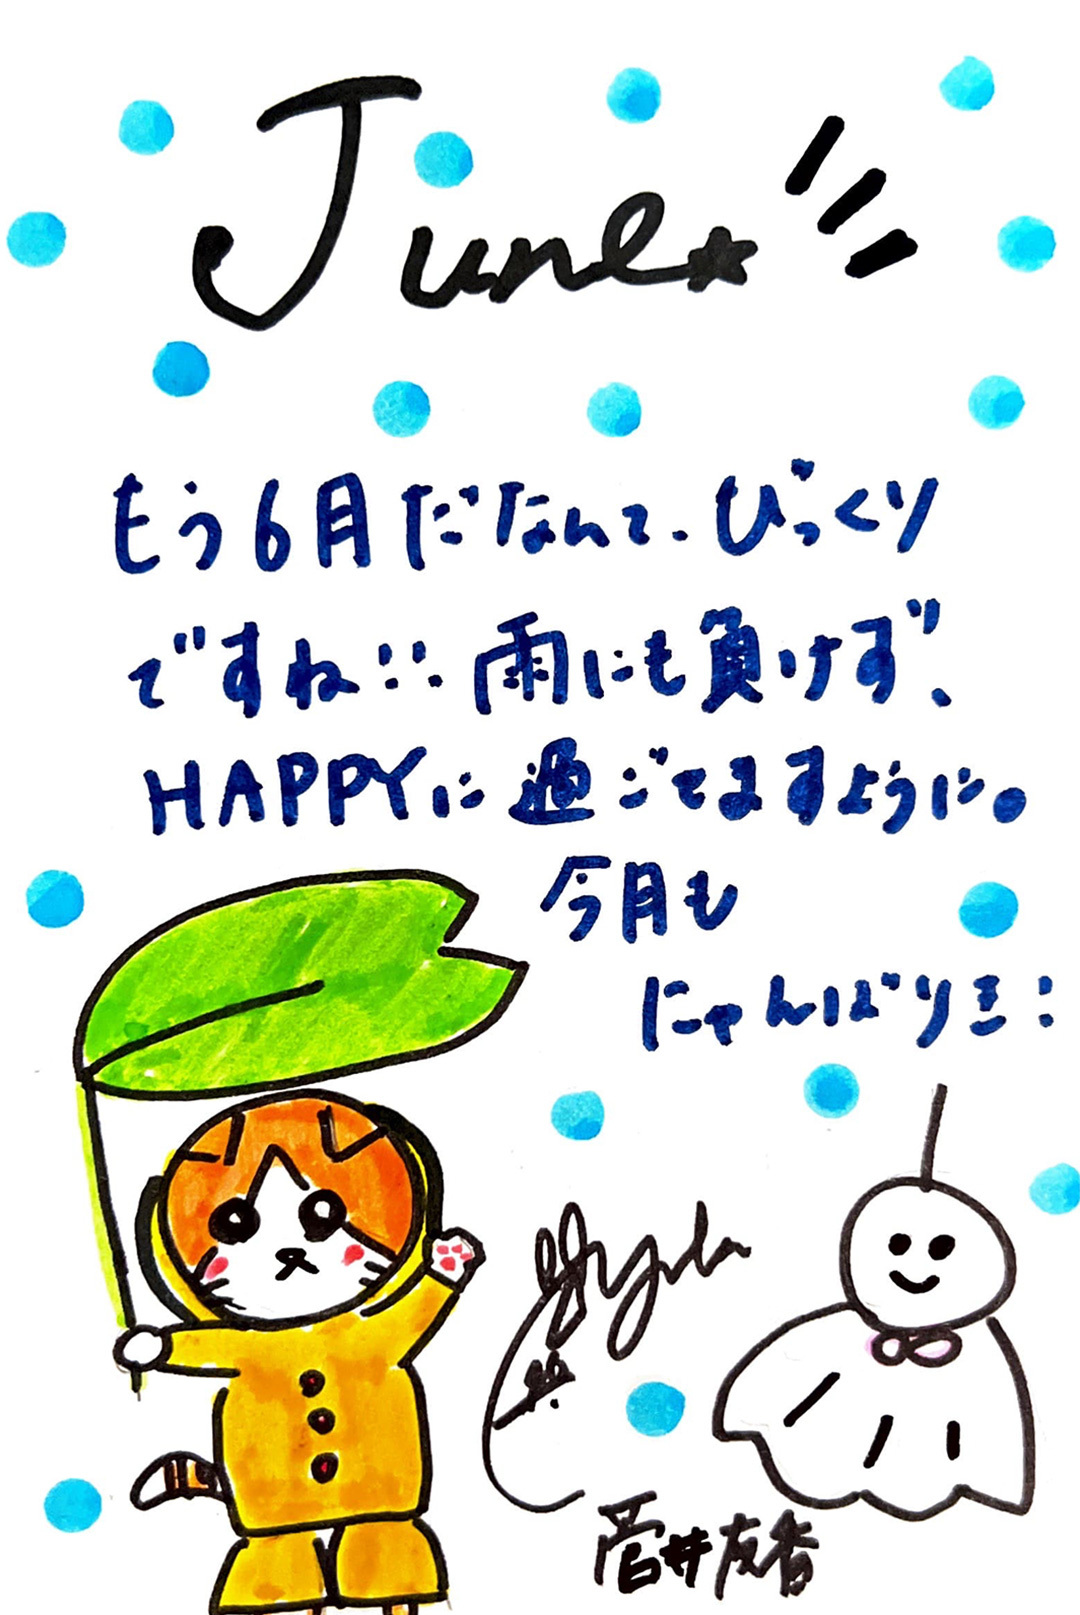 June☆
もう6月だなんて、びっくり
ですね!! 雨にも負けず、
HAPPYに過ごせますように。
今月も
にゃんばります!
菅井友香